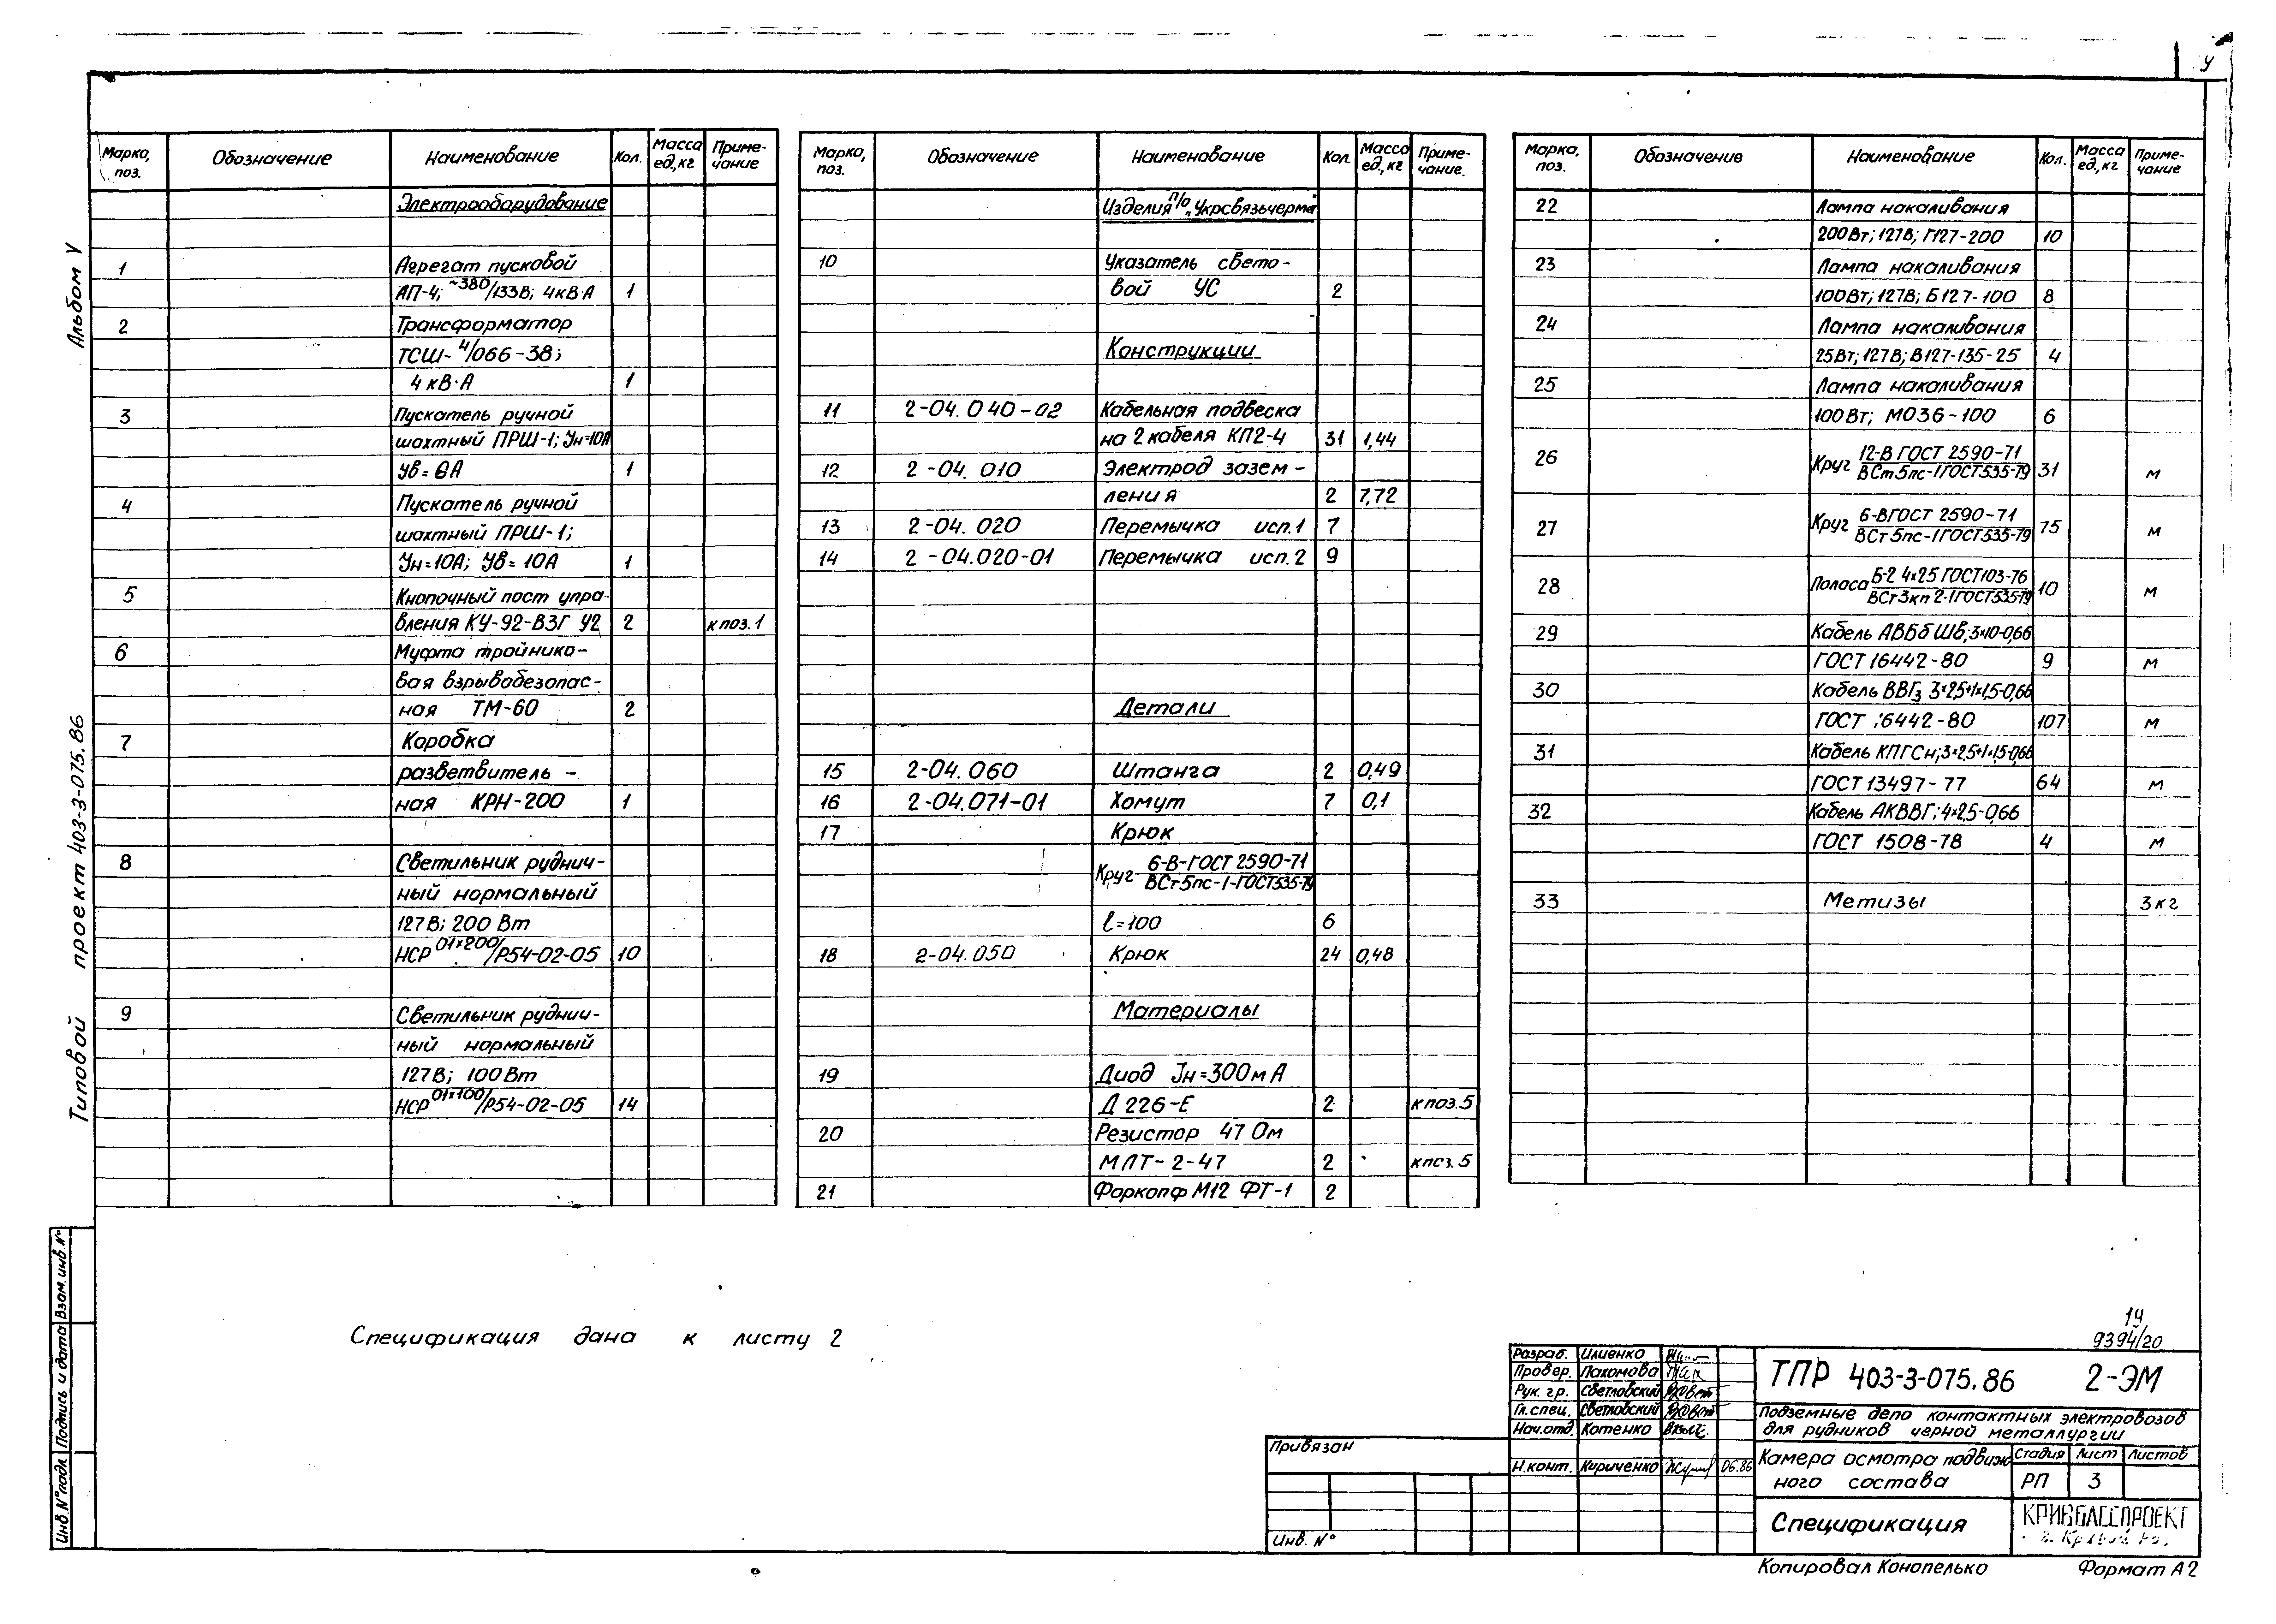 У
Альбом V
Типовой проект 403-3-075.86
Марка, поз. Обозначение Наименование Кол. Масса ед,кг Приме-чание
Электрооборудование
1 Агрегат пусковой
АП-4; ~380/133В; 4кВ·А 1
2 Трансформатор
ТСШ-4/066-38;
4 кВ·А 1
3 Пускатель ручной
шахтный ПРШ-1; Ун=10А
Ув= 6А 1
4 Пускатель ручной
шахтный ПРШ-1;
Ун=10А; Ув= 10А 1
5 Кнопочный пост упра-
вления КУ-92-ВЗГ У2 2 к поз.1
6 Муфта тройнико-
вая взрывобезопас-
ная ТМ-60 2
7 Коробка
разветвитель-
ная КРН-200 1
8 Светильник руднич-
ный нормальный
127В; 200 Вт
НСР 01×200/Р54-02-05 10
9 Светильник руднич-
ный нормальный
127В; 100Вт
НСР 01×100/Р54-02-05 14
Марка, поз. Обозначение Наименование Кол. Масса ед.,кг Приме-чание.
Изделия п/о „Укрсвязьчермет
10 Указатель свето-
вой УС 2
Конструкции
11 2-04.040-02 Кабельная подвеска
на 2 кабеля КП2-4 31 1,44
12 2-04.010 Электрод зазем-
ления 2 7,72
13 2-04.020 Перемычка исп.1 7
14 2-04.020-01 Перемычка исп.2 9
Детали
15 2-04.060 Штанга 2 0,49
16 2-04.071-01 Хомут 7 0,1
17 Крюк
Круг 6-В-ГОСТ 2590-71
ВСт5пс-1-ГОСТ535-79
ℓ=100 6
18 2-04.050 Крюк 24 0,48
Материалы
19 Диод Jн=300мА
Д 226-Е 2 к поз.5
20 Резистор 47 Ом
МЛТ-2-47 2 к поз.5
21 Форкопф М12 ФТ-1 2
Марка, поз. Обозначение Наименование Кол. Масса ед.,кг Приме-чание
22 Лампа накаливания
200Вт; 127В; Г127-200 10
23 Лампа накаливания
100Вт; 127В; Б127-100 8
24 Лампа накаливания
25Вт; 127В; В127-135-25 4
25 Лампа накаливания
100Вт; МО36-100 6
26 Круг 12-В ГОСТ 2590-71
ВСт5пс-1ГОСТ535-79 31 м
27 Круг 6-В ГОСТ 2590-71
ВСт5пс-1ГОСТ535-79 75 м
28 Полоса Б-2 4×25 ГОСТ103-76
ВСт3кп2-1ГОСТ535-79 10 м
29 Кабель АВБбШв; 3×10-0,66
ГОСТ 16442-80 9 м
30 Кабель ВВГз 3×2,5+1×1,5-0,66
ГОСТ 16442-80 107 м
31 Кабель КПГСн; 3×2,5+1×1,5-0,66
ГОСТ 13497-77 64 м
32 Кабель АКВВГ; 4×2,5-0,66
ГОСТ 1508-78 4 м
33 Метизы 3кг
Спецификация дана к листу 2
14
9394/20
Взам.инв.№
Подпись и дата
Инв.№подл
Разраб. Илиенко
Провер. Пахомова
Рук. гр. Светловский
Гл.спец. Светловский
Нач.отд. Котенко
Н.конт. Кириченко 06.86
Привязан
Инв. №
ТПР 403-3-075.86 2-ЭМ
Подземные депо контактных электровозов
для рудников черной металлургии
Камера осмотра подвиж
ного состава
Стадия Лист Листов
РП 3
Спецификация
КРИВБАССПРОЕКТ
Копировал Конопелько Формат А2